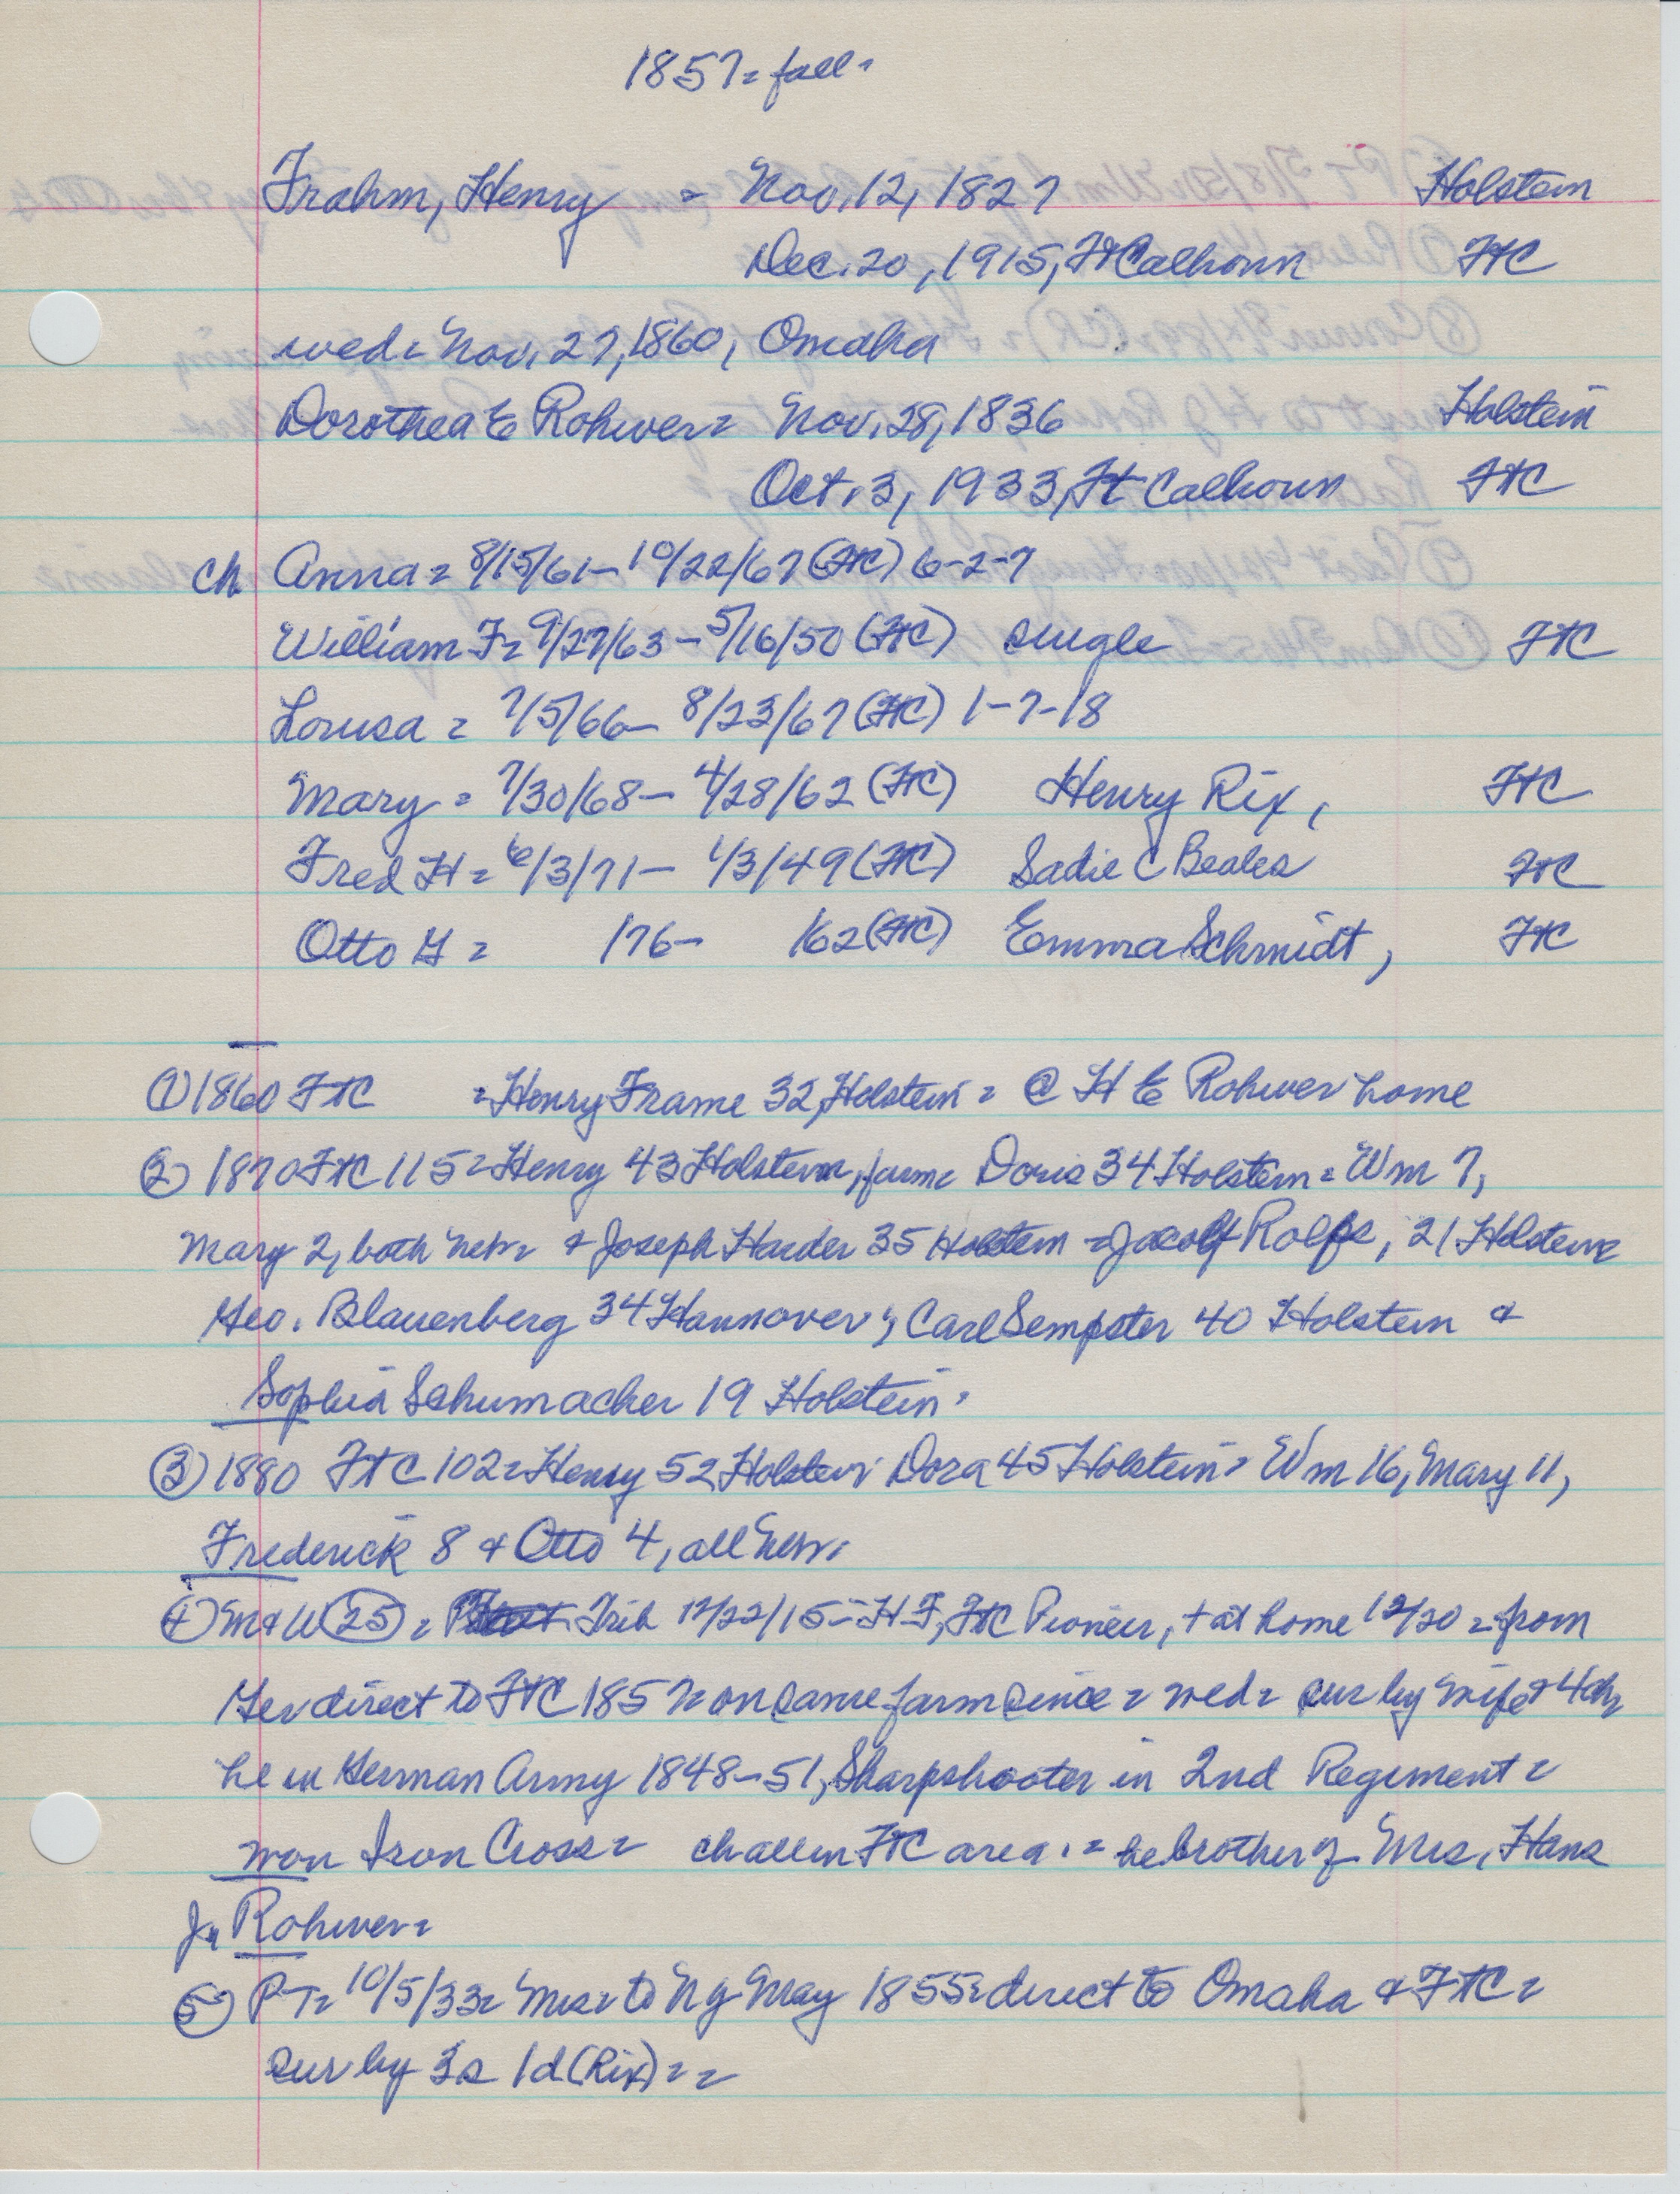 1857 = fall =
Frahm, Henry = Nov. 12, 1827 Holstein
Dec. 20, 1915, Ft Calhoun FtC
wed = Nov. 27, 1860, Omaha
Dorothea E Rohwer = Nov. 28, 1836 Holstein
Oct. 3, 1933, Ft Calhoun FtC
ch Anna = 8/15/61 - 10/22/67 (FtC) 6-2-7
William F = 9/27/63 - 5/16/50 (FtC) single FtC
Louisa = 7/5/66 - 8/23/67 (FtC) 1-7-18
Mary = 7/30/68 - 4/28/62 (FtC) Henry Rix, FtC
Fred H = 6/3/71 - 1/3/49 (FtC) Sadie C Beales FtC
Otto G = /76 - /62 (FtC) Emma Schmidt, FtC
① 1860 FtC = Henry Frame 32, Holstein = @ H E Rohwer home
② 1870 FtC 115 = Henry 43 Holstein, farm = Doris 34 Holstein = Wm 7,
Mary 2, both Neb = & Joseph Harder 35 Holstein = Jacob Rolfs, 21 Holstein
Geo. Blauenberg 34 Hannover; Carl Sempster 40 Holstein &
Sophia Schumacher 19 Holstein.
③ 1880 FtC 102 = Henry 52 Holstein Dora 45 Holstein = Wm 16, Mary 11,
Frederick 8 & Otto 4, all Neb.
④ M&W 25 = Trib 12/22/15 = H F, FtC Pioneer, + at home 12/20 = from
Ger direct to FtC 1857 = on same farm since = wed = sur by wife & 4 ch
he in German Army 1848-51, Sharpshooter in 2nd Regiment =
won Iron Cross = ch all in FtC area. = he brother of Mrs. Hans
J. Rohwer =
⑤ PT = 10/5/33 = Mrs = to NY May 1855 = direct to Omaha & FtC =
sur by 3s 1d (Rix) = =